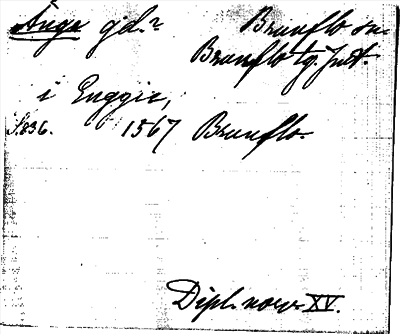 Ånge gd.? Brunflo sn.
Brunflo tg. Jmt.
i Enggie,
S. 836. 1567 Brunflo.
Dipl. norv. XV.